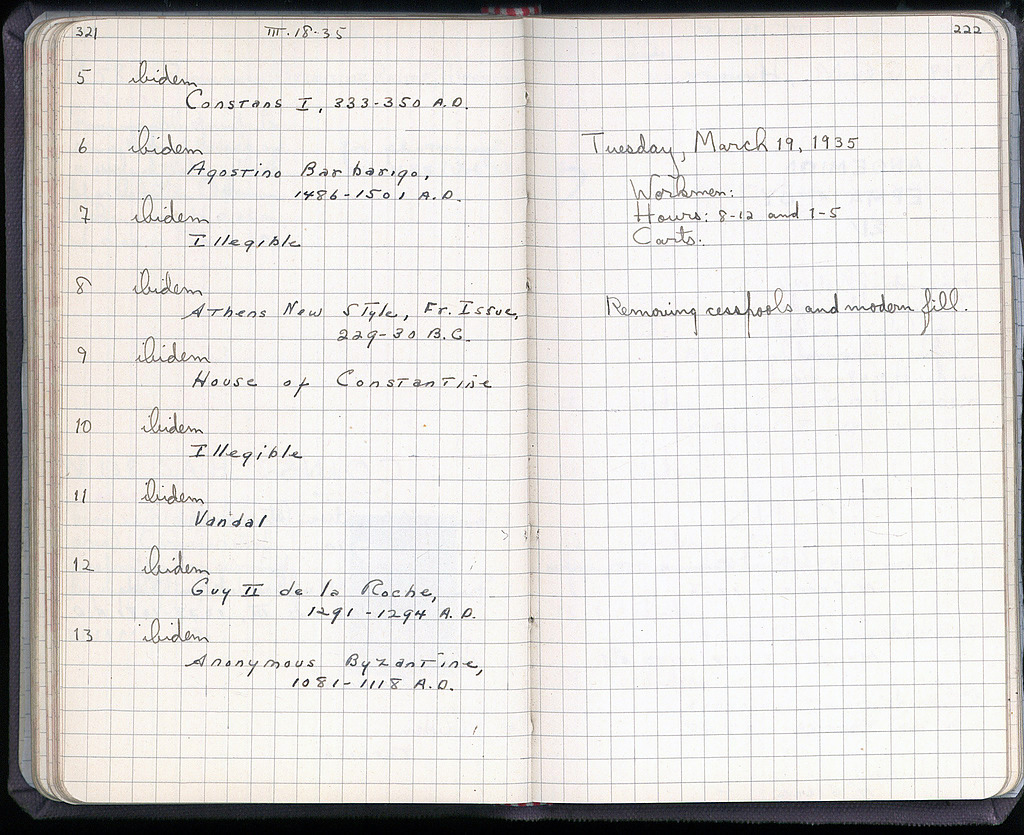 321
III.18-35
5 ibidem
Constans I, 333-350 A.D.
6 ibidem
Agostino Barbarigo,
1486-1501 A.D.
7 ibidem
Illegible
8 ibidem
Athens New Style, Fr. Issue,
229-30 B.C.
9 ibidem
House of Constantine
10 ibidem
Illegible
11 ibidem
Vandal
12 ibidem
Guy II de la Roche,
1291-1294 A.D.
13 ibidem
Anonymous Byzantine,
1081-1118 A.D.
222
Tuesday, March 19, 1935
Workmen:
Hours: 8-12 and 1-5
Carts:
Removing cesspools and modern fill.